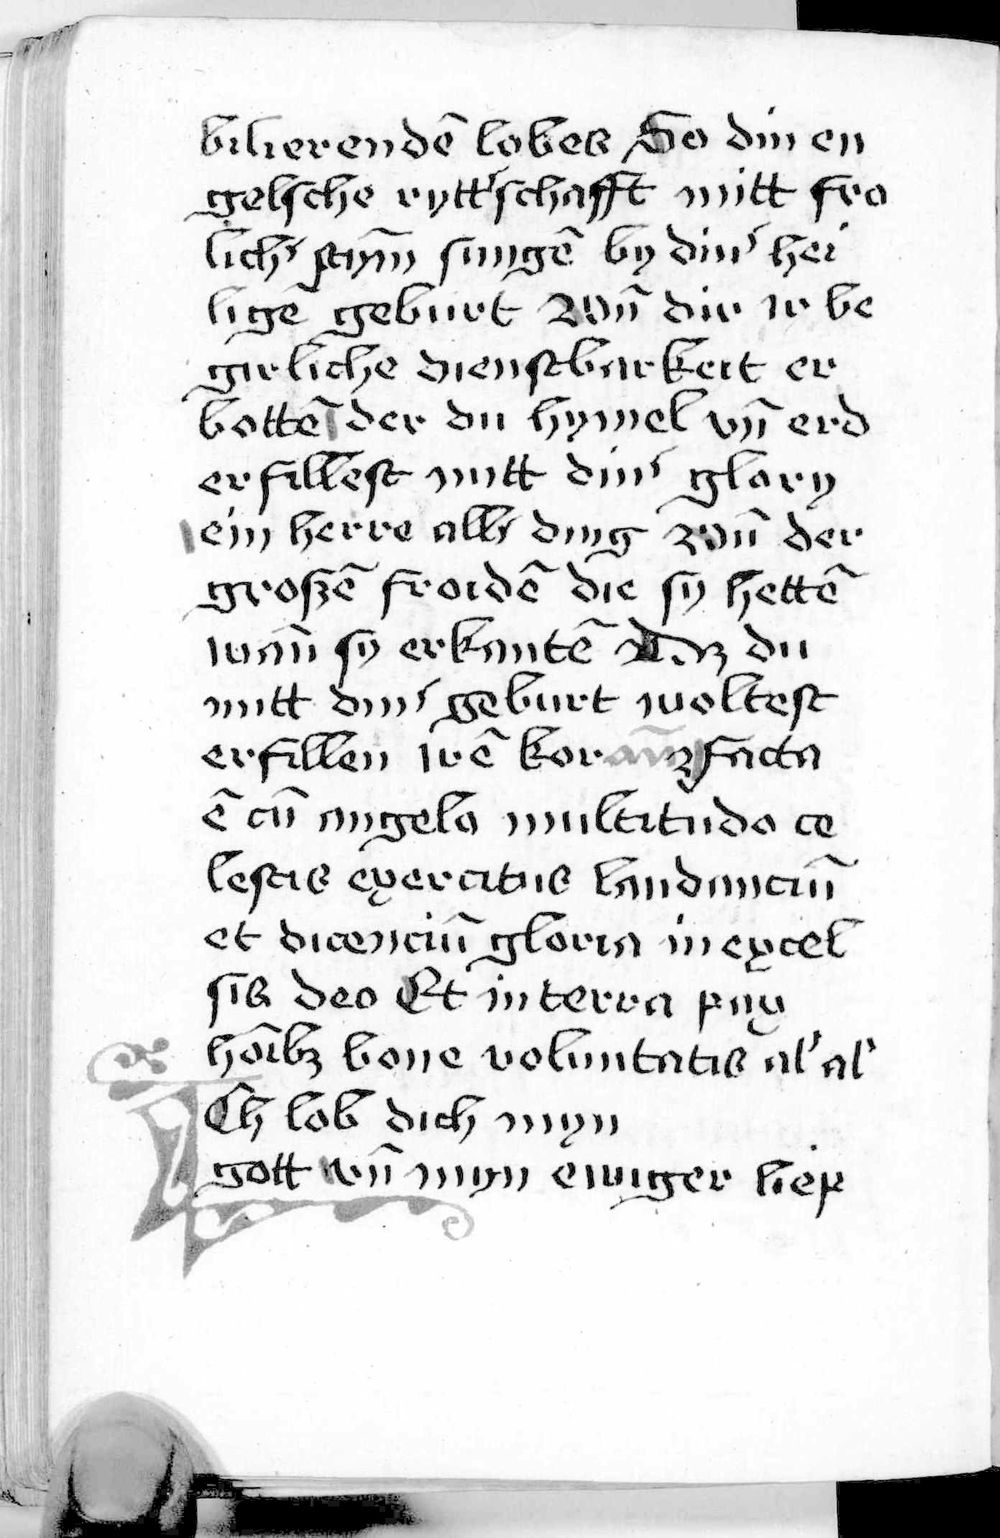 bilierendē lobes So din en
gelsche rytt'schafft mitt fro
lich' stȳm singē by din' hei
ligē geburt Vnd̄ dir ir be
girliche dienstbarkeit er
bottē der du hymel vn̄ erd
erfillest mitt din' glory
ein herre all' ding Vn̄ der
großē froidē die sy hettē
wan̄ sy erkantē Daz du
mitt din' geburt woltest
erfillen irē kor facta
ē cū angelo multitudo ce
lestis exercitus laudanciū
et dicenciū gloria in excel
sis deo Et in terra pax
hōibꝫ bone voluntatis al' al'
ICh lob dich myn
gott vn̄ myn ewiger liep